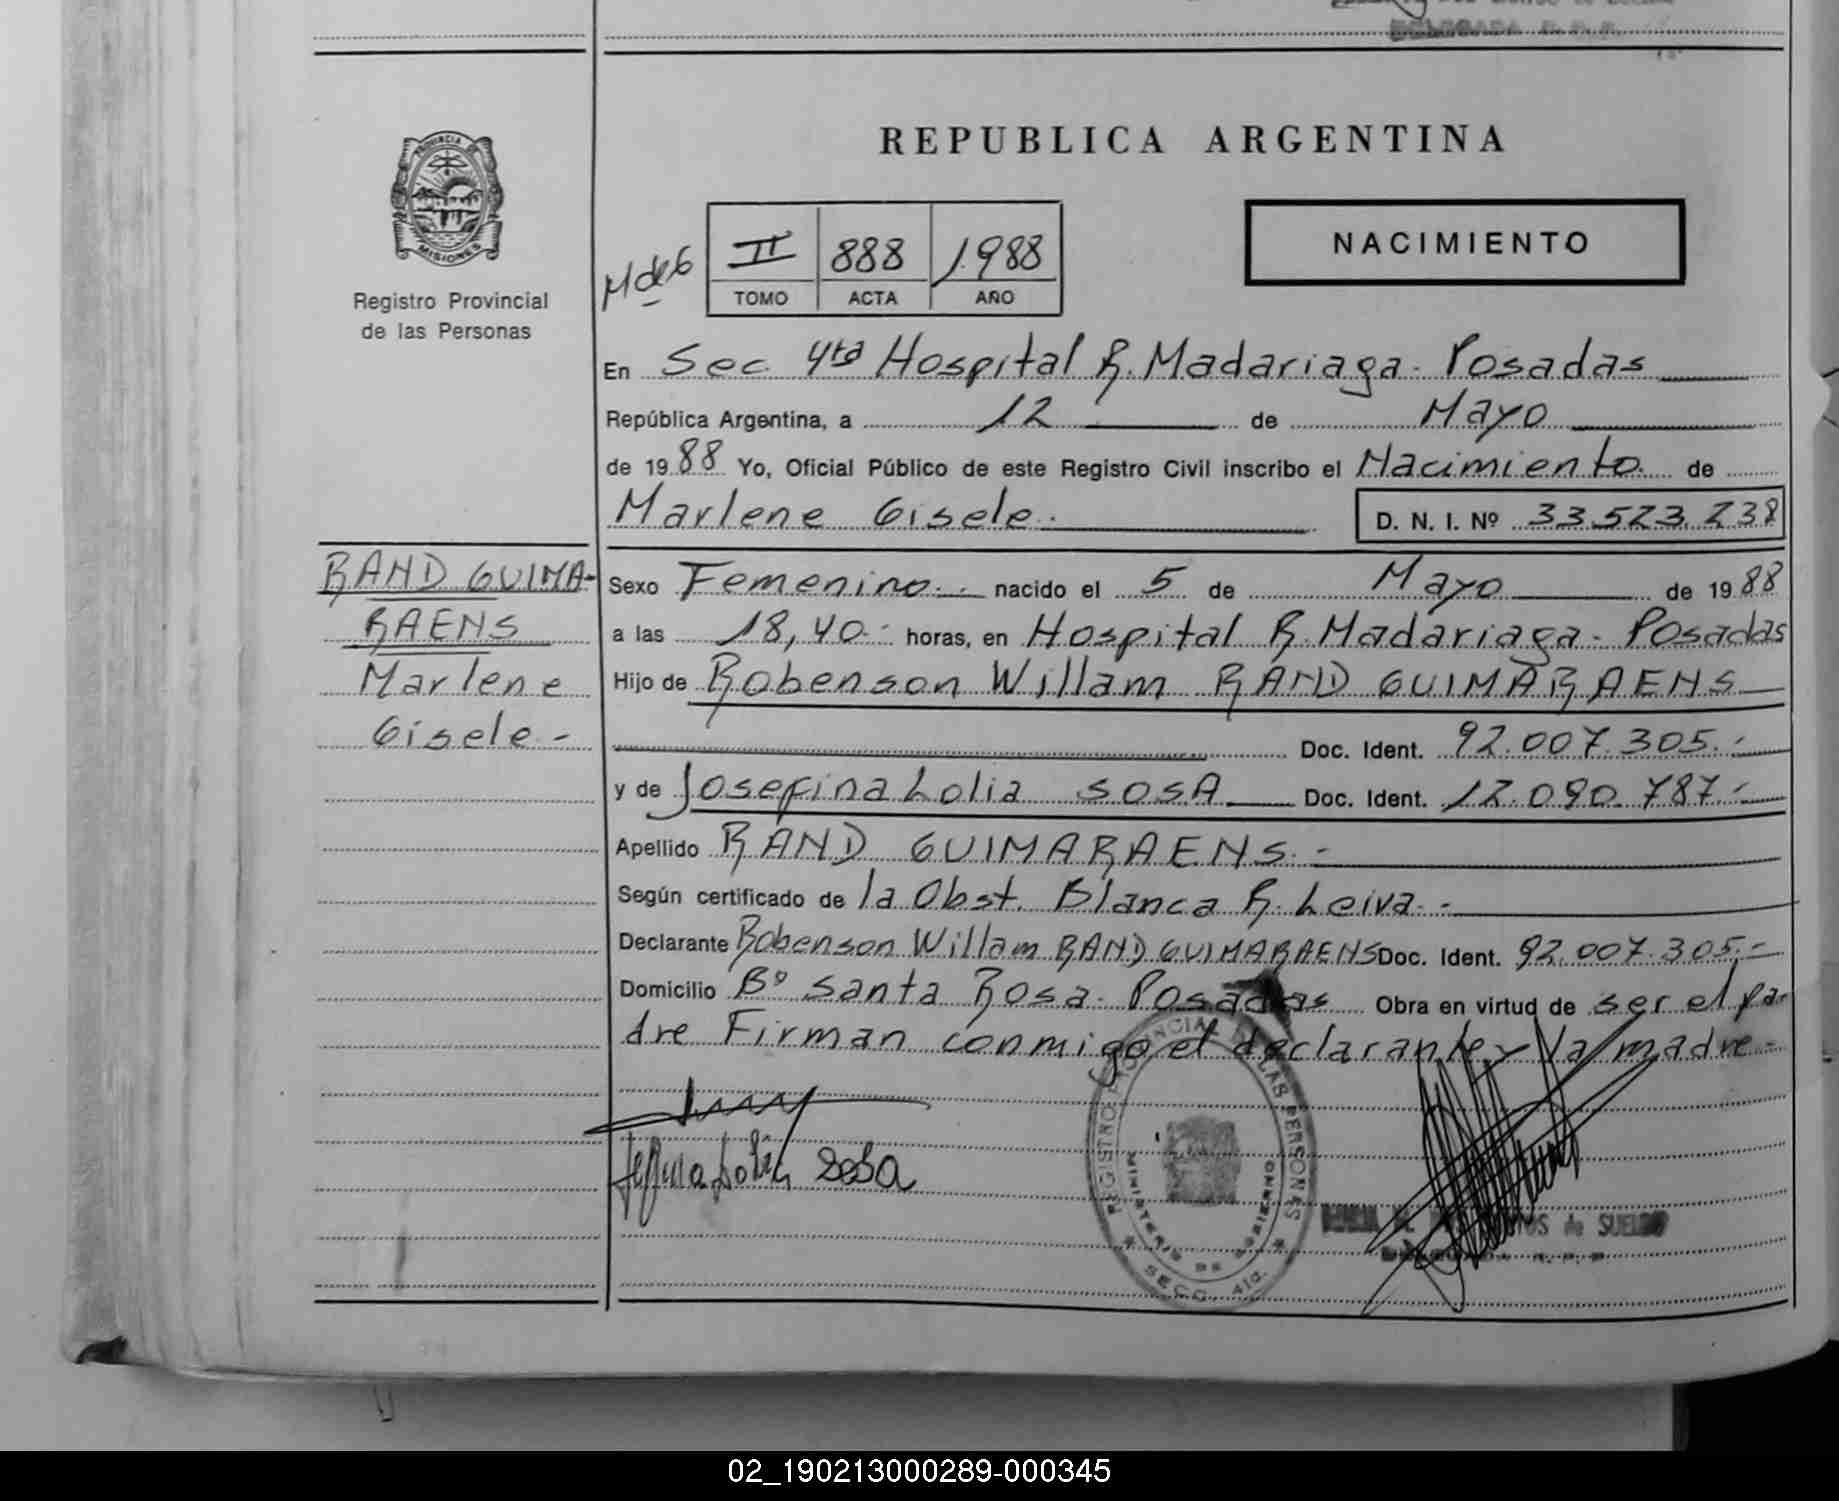 PROVINCIA DE
MISIONES
Registro Provincial
de las Personas
RAND GUIMA-
RAENS
Marlene
Gisele -
REPUBLICA ARGENTINA
NACIMIENTO
II 888 1988
TOMO ACTA AÑO
En Sec 4ta Hospital R. Madariaga - Posadas
República Argentina, a 12 de Mayo
de 19 88 Yo, Oficial Público de este Registro Civil inscribo el Nacimiento de
Marlene Gisele - D. N. I. Nº 33.523.238
Sexo Femenino - nacido el 5 de Mayo de 19 88
a las 18,40 - horas, en Hospital R. Madariaga - Posadas
Hijo de Robenson Willam RAND GUIMARAENS
Doc. Ident. 92.007.305.-
y de Josefina Lolia SOSA Doc. Ident. 12.090.787.-
Apellido RAND GUIMARAENS. -
Según certificado de la Obst. Blanca R. Leiva. -
Declarante Robenson Willam RAND GUIMARAENS Doc. Ident. 92.007.305.-
Domicilio Bº Santa Rosa - Posadas Obra en virtud de ser el pa-
dre Firman conmigo el declarante y la madre -
Sosa
REGISTRO PROVINCIAL DE LAS PERSONAS
MINISTERIO DE GOBIERNO
SECC. 4ta.
de SUELDO
02_190213000289-000345